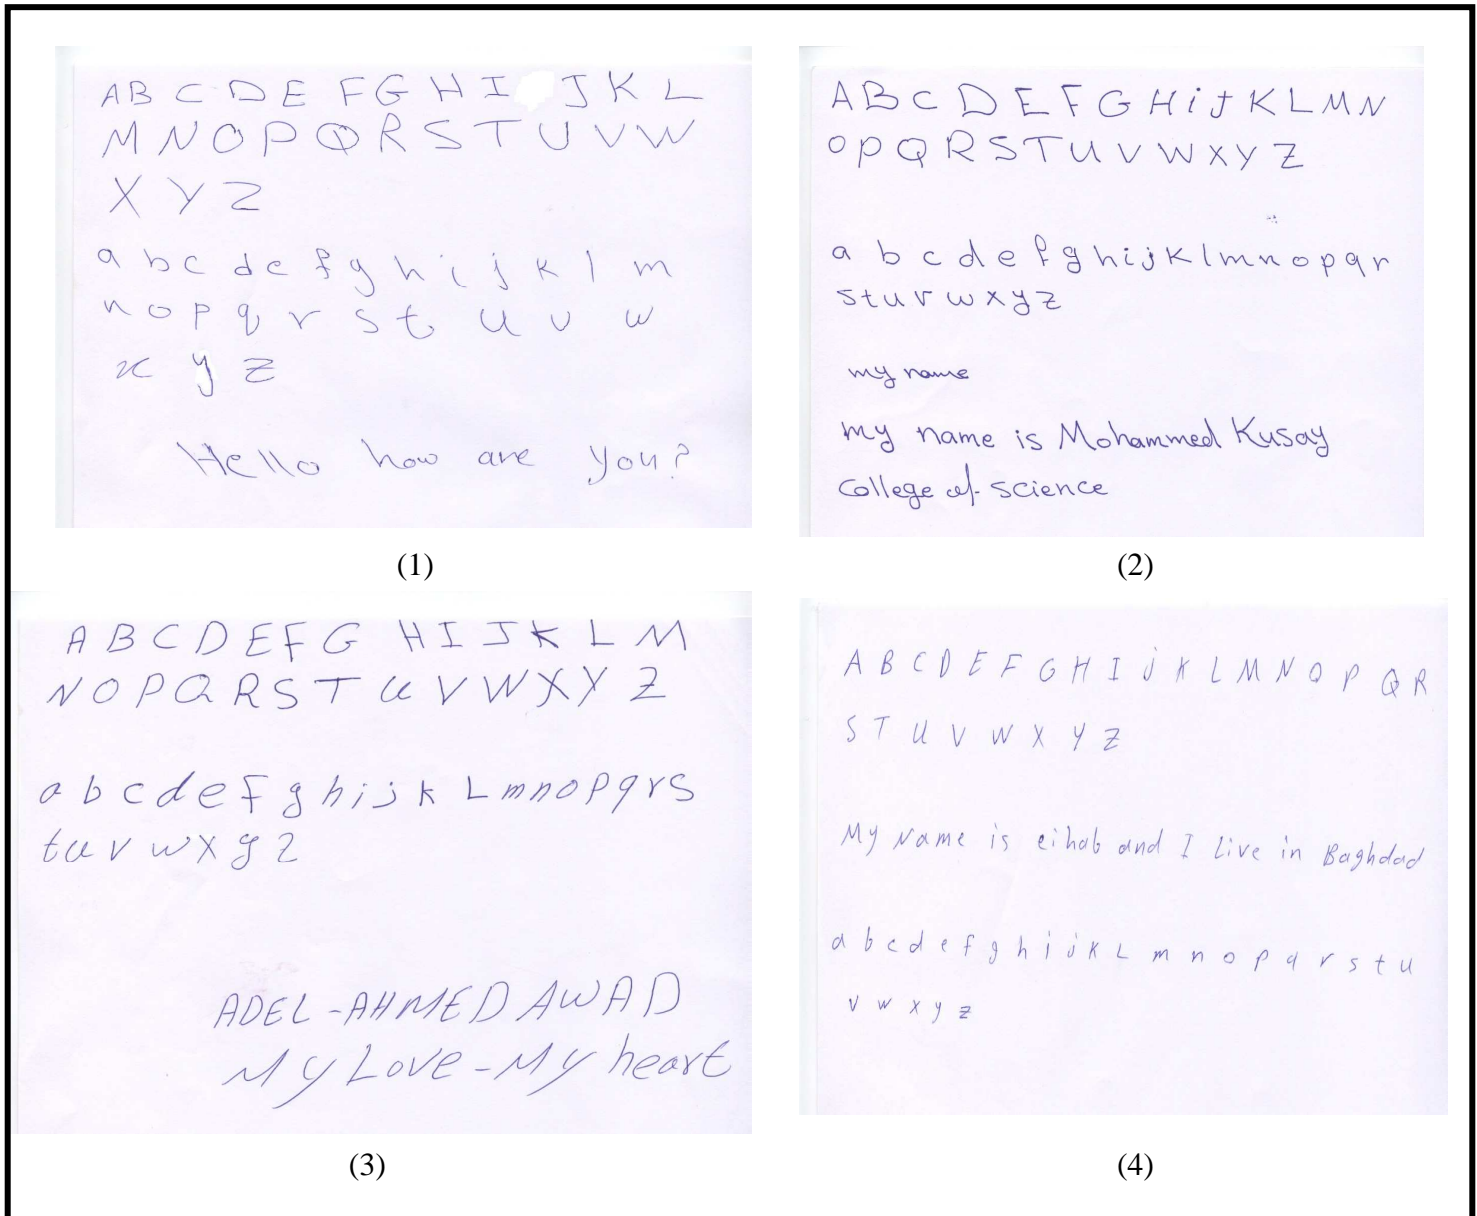 AB C D E F G H I J K L
M N O P Q R S T U V W
X Y Z
a b c d e f g h i j k l m
n o p q r s t u v w
x y z
Hello how are you?
(1)
A B C D E F G H i J K L M N
O P Q R S T U V W X Y Z
a b c d e f g h i j k l m n o p q r
s t u v w x y z
my name
my name is Mohammed Kusay
College of science
(2)
A B C D E F G H I J K L M
N O P Q R S T U V W X Y Z
a b c d e f g h i j k L m n o p q r s
t u v w x y z
ADEL - AHMED AWAD
My LOVE - My heart
(3)
A B C D E F G H I j K L M N O P Q R
S T U V W X Y Z
My Name is eihab and I Live in Baghdad
a b c d e f g h i j k L m n o p q r s t u
v w x y z
(4)